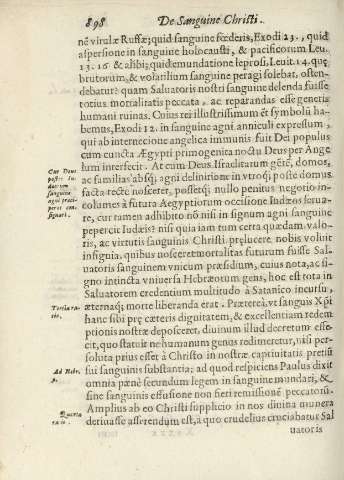 898 De Sanguine Christi.
nē virulæ Ruffæ; quid sanguine fœderis, Exodi 23., quid
aspersione in sanguine holocausti, & pacificorum Leui.
13. 16 & alibi; quid emundatione leprosi, Leuit. 14. quę
brutorum, & volatilium sanguine peragi solebat, osten-
debatur? quam Saluatoris nostri sanguine delenda fuisse
totius mortalitatis peccata, ac reparandas esse generis
humani ruinas. Cuius rei illustrissimum et symbolū ha-
bemus, Exodi 12. in sanguine agni anniculi expressum,
qui ab internecione angelica immunis fuit Dei populus
cum cuncta Ægypti primogenita noctu Deus per Ange
lum interfecit. At cum Deus Israelitarum gētē, domos,
Cur Deus
post: Iu
dæorum
sanguine
agni præci-
perat con-
signari.
ac familias absq; agni definitione in vtroq; poste domus
facta recte nosceret, possetq; nullo penitus negotio in-
columes à futura Aegyptiorum occisione Iudæos serua-
re, cur tamen adhibito nō nisi in signum agni sanguine
pepercit Iudæis? nisi quia iam tum certa quædam valo-
ris, ac virtutis sanguinis Christi pręlucere nobis voluit
insignia, quibus nosceret mortalitas futurum fuisse Sal-
uatoris sanguinem vnicum præsidium, cuius nota, ac si-
gno intincta vniuersa Hebræorum gens, hoc est tota in
Saluatorem credentium multitudo à Satanico incursu,
Tertia ra-
tio.
æternaq; morte liberanda erat. Prætereà, vt sanguis Xp̄i
hanc sibi præ cæteris dignitatem, & excellentiam redem
ptionis nostræ deposceret, diuinum illud decretum effe-
cit, quo statuit ne humanum genus redimeretur, nisi per-
soluta prius esset à Christo in nostræ captiuitatis pretiū
Ad Hebr.
9.
sui sanguinis substantia; ad quod respiciens Paulus dixit
omnia pænè secundum legem in sanguine mundari, &
sine sanguinis effusione non fieri remissionē peccatorū.
Quarta
ratio.
Amplius ab eo Christi supplicio in nos diuina munera
deriuasse asserendum est, à quo crudelius cruciabatur Sal
uatoris